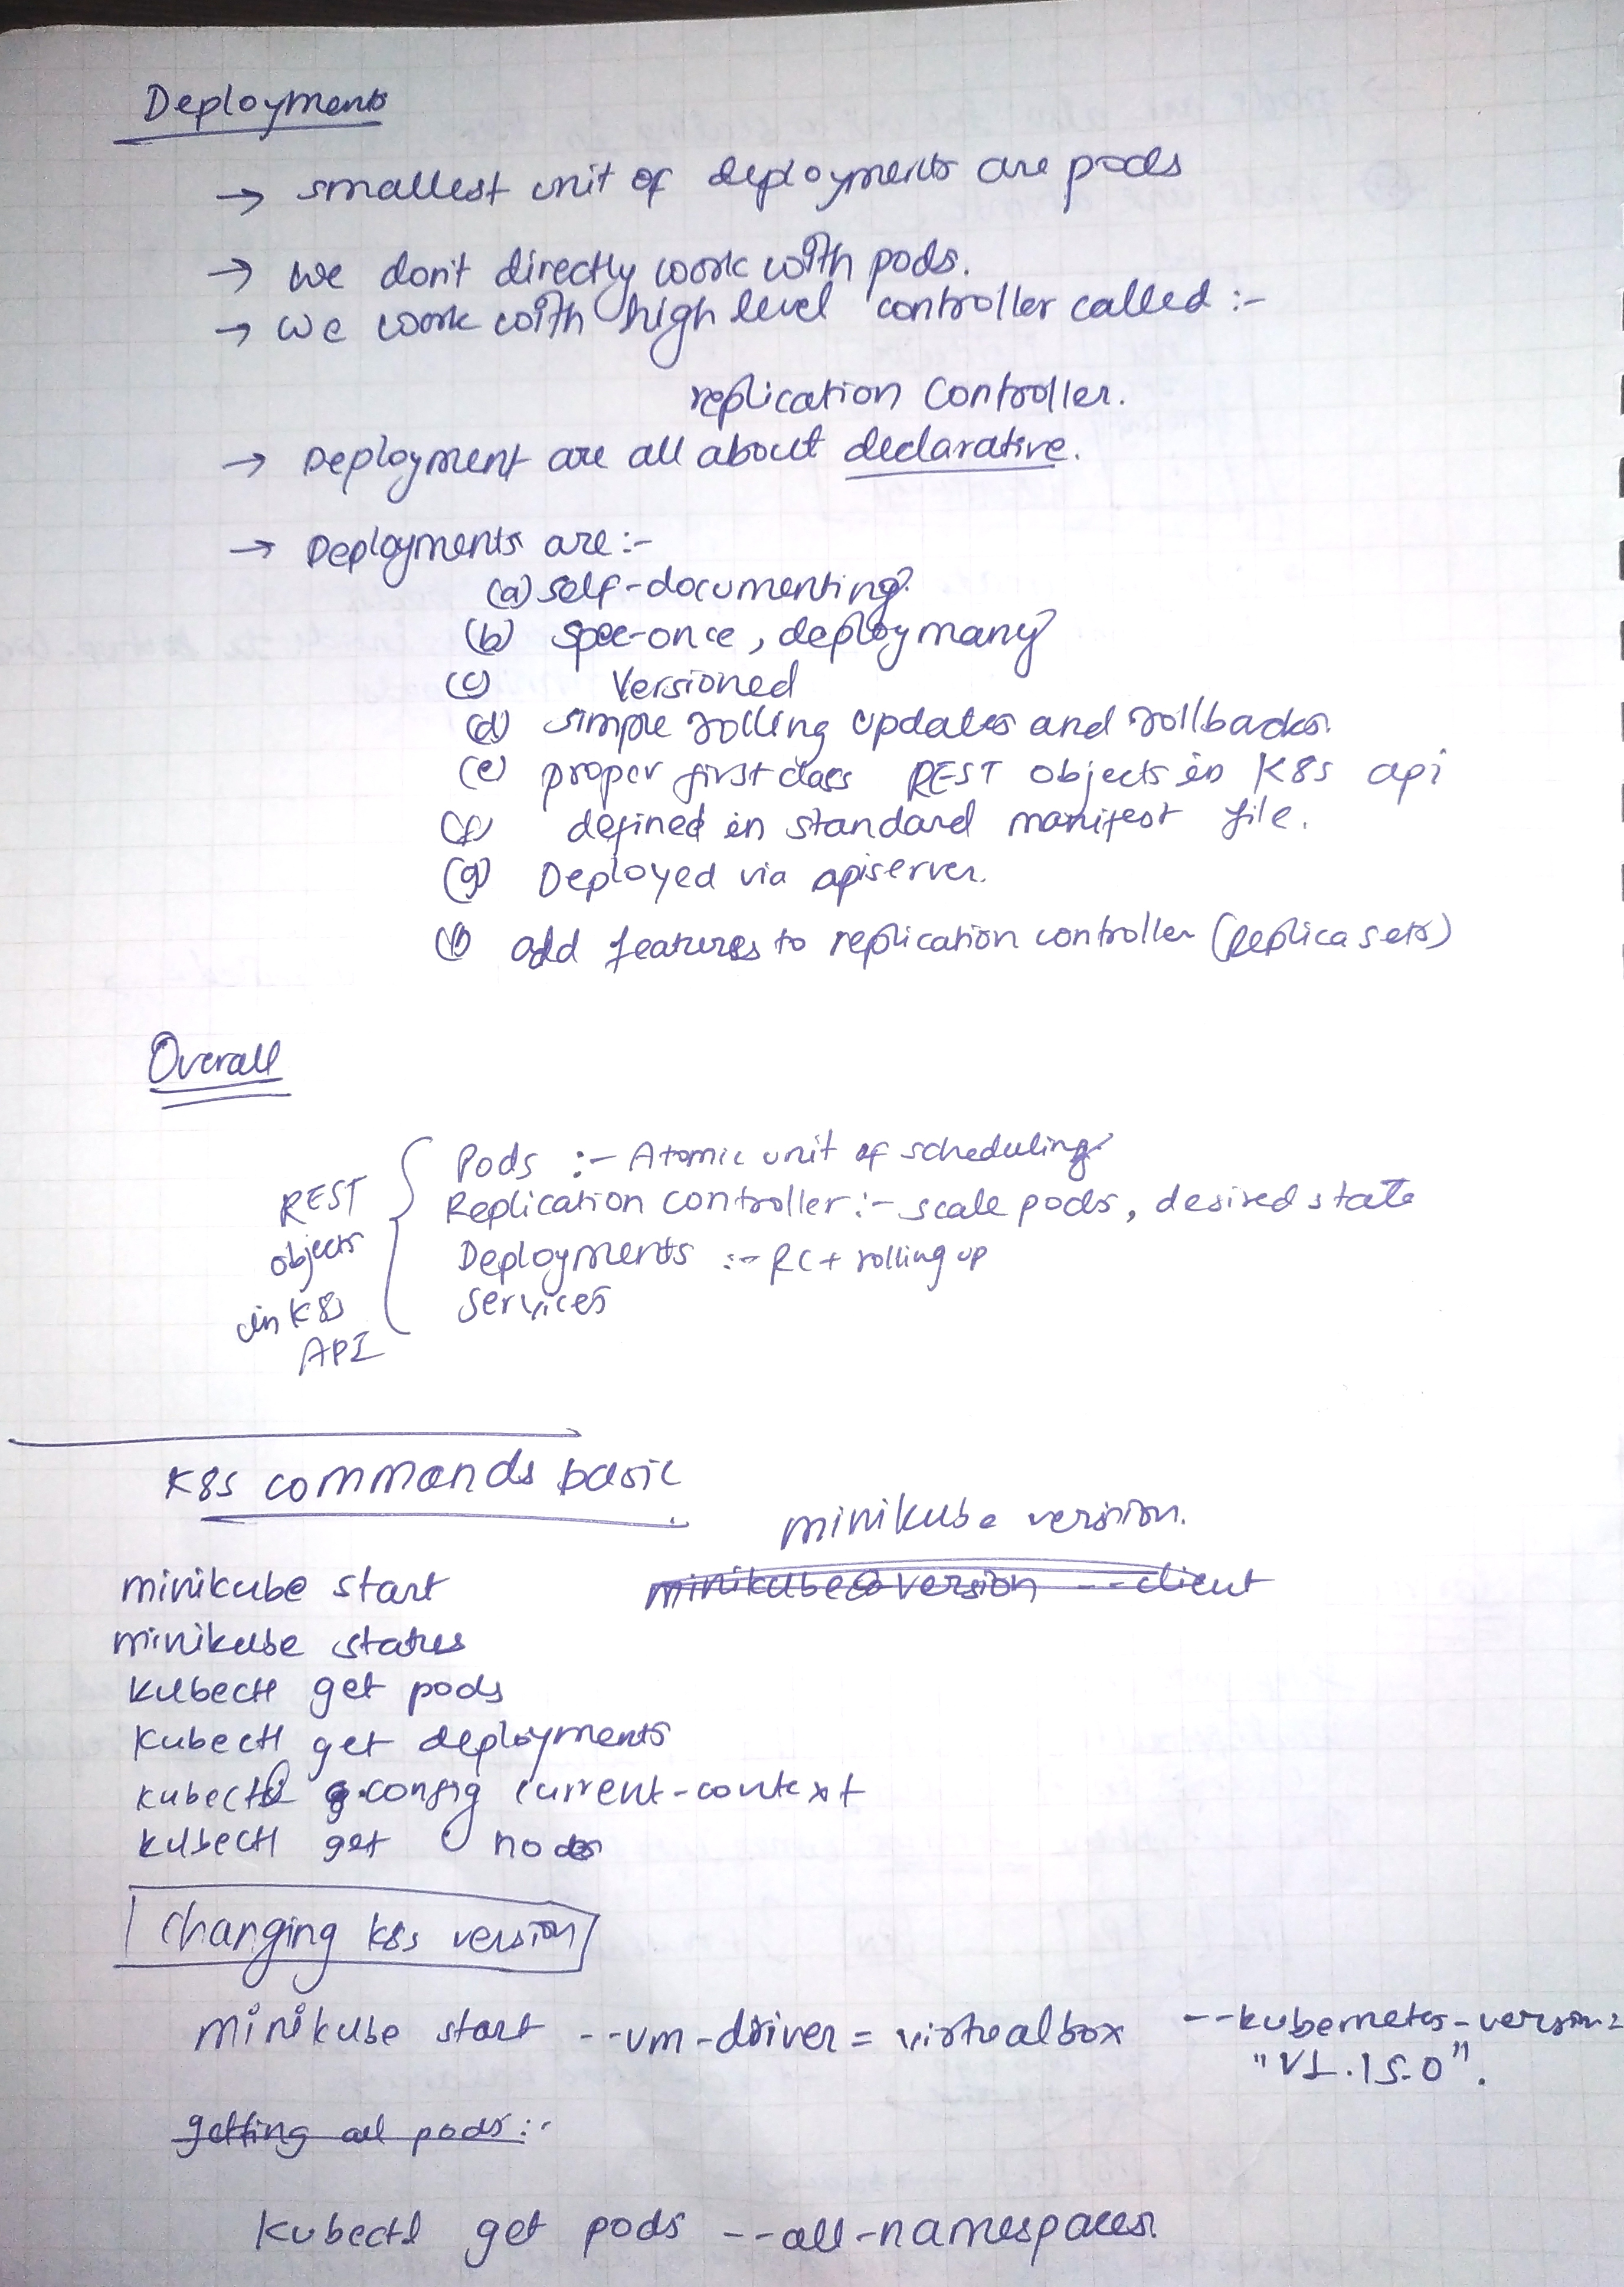 Deployments
→ smallest unit of deployments are pods
→ we don't directly work with pods.
→ we work with high level controller called :-
replication controller.
→ Deployment are all about declarative.
→ Deployments are :-
(a) self-documenting
(b) spec-once, deploy many
(c) Versioned
(d) simple rolling updates and rollbacks.
(e) proper first class REST objects in K8s api
(f) defined in standard manifest file.
(g) Deployed via apiserver.
add features to replication controller (Replica sets)
Overall
REST objects in K8s API
Pods :- Atomic unit of scheduling
Replication controller :- scale pods, desired state
Deployments :- RC + rolling up
Services
K8s commands basic
minikube version.
minikube start
minikube version --client
minikube status
kubectl get pods
kubectl get deployments
kubectl config current-context
kubectl get nodes
Changing k8s version
minikube start --vm-driver = virtualbox --kubernetes-version=
"V1.15.0".
getting all pods :-
kubectl get pods --all-namespaces.